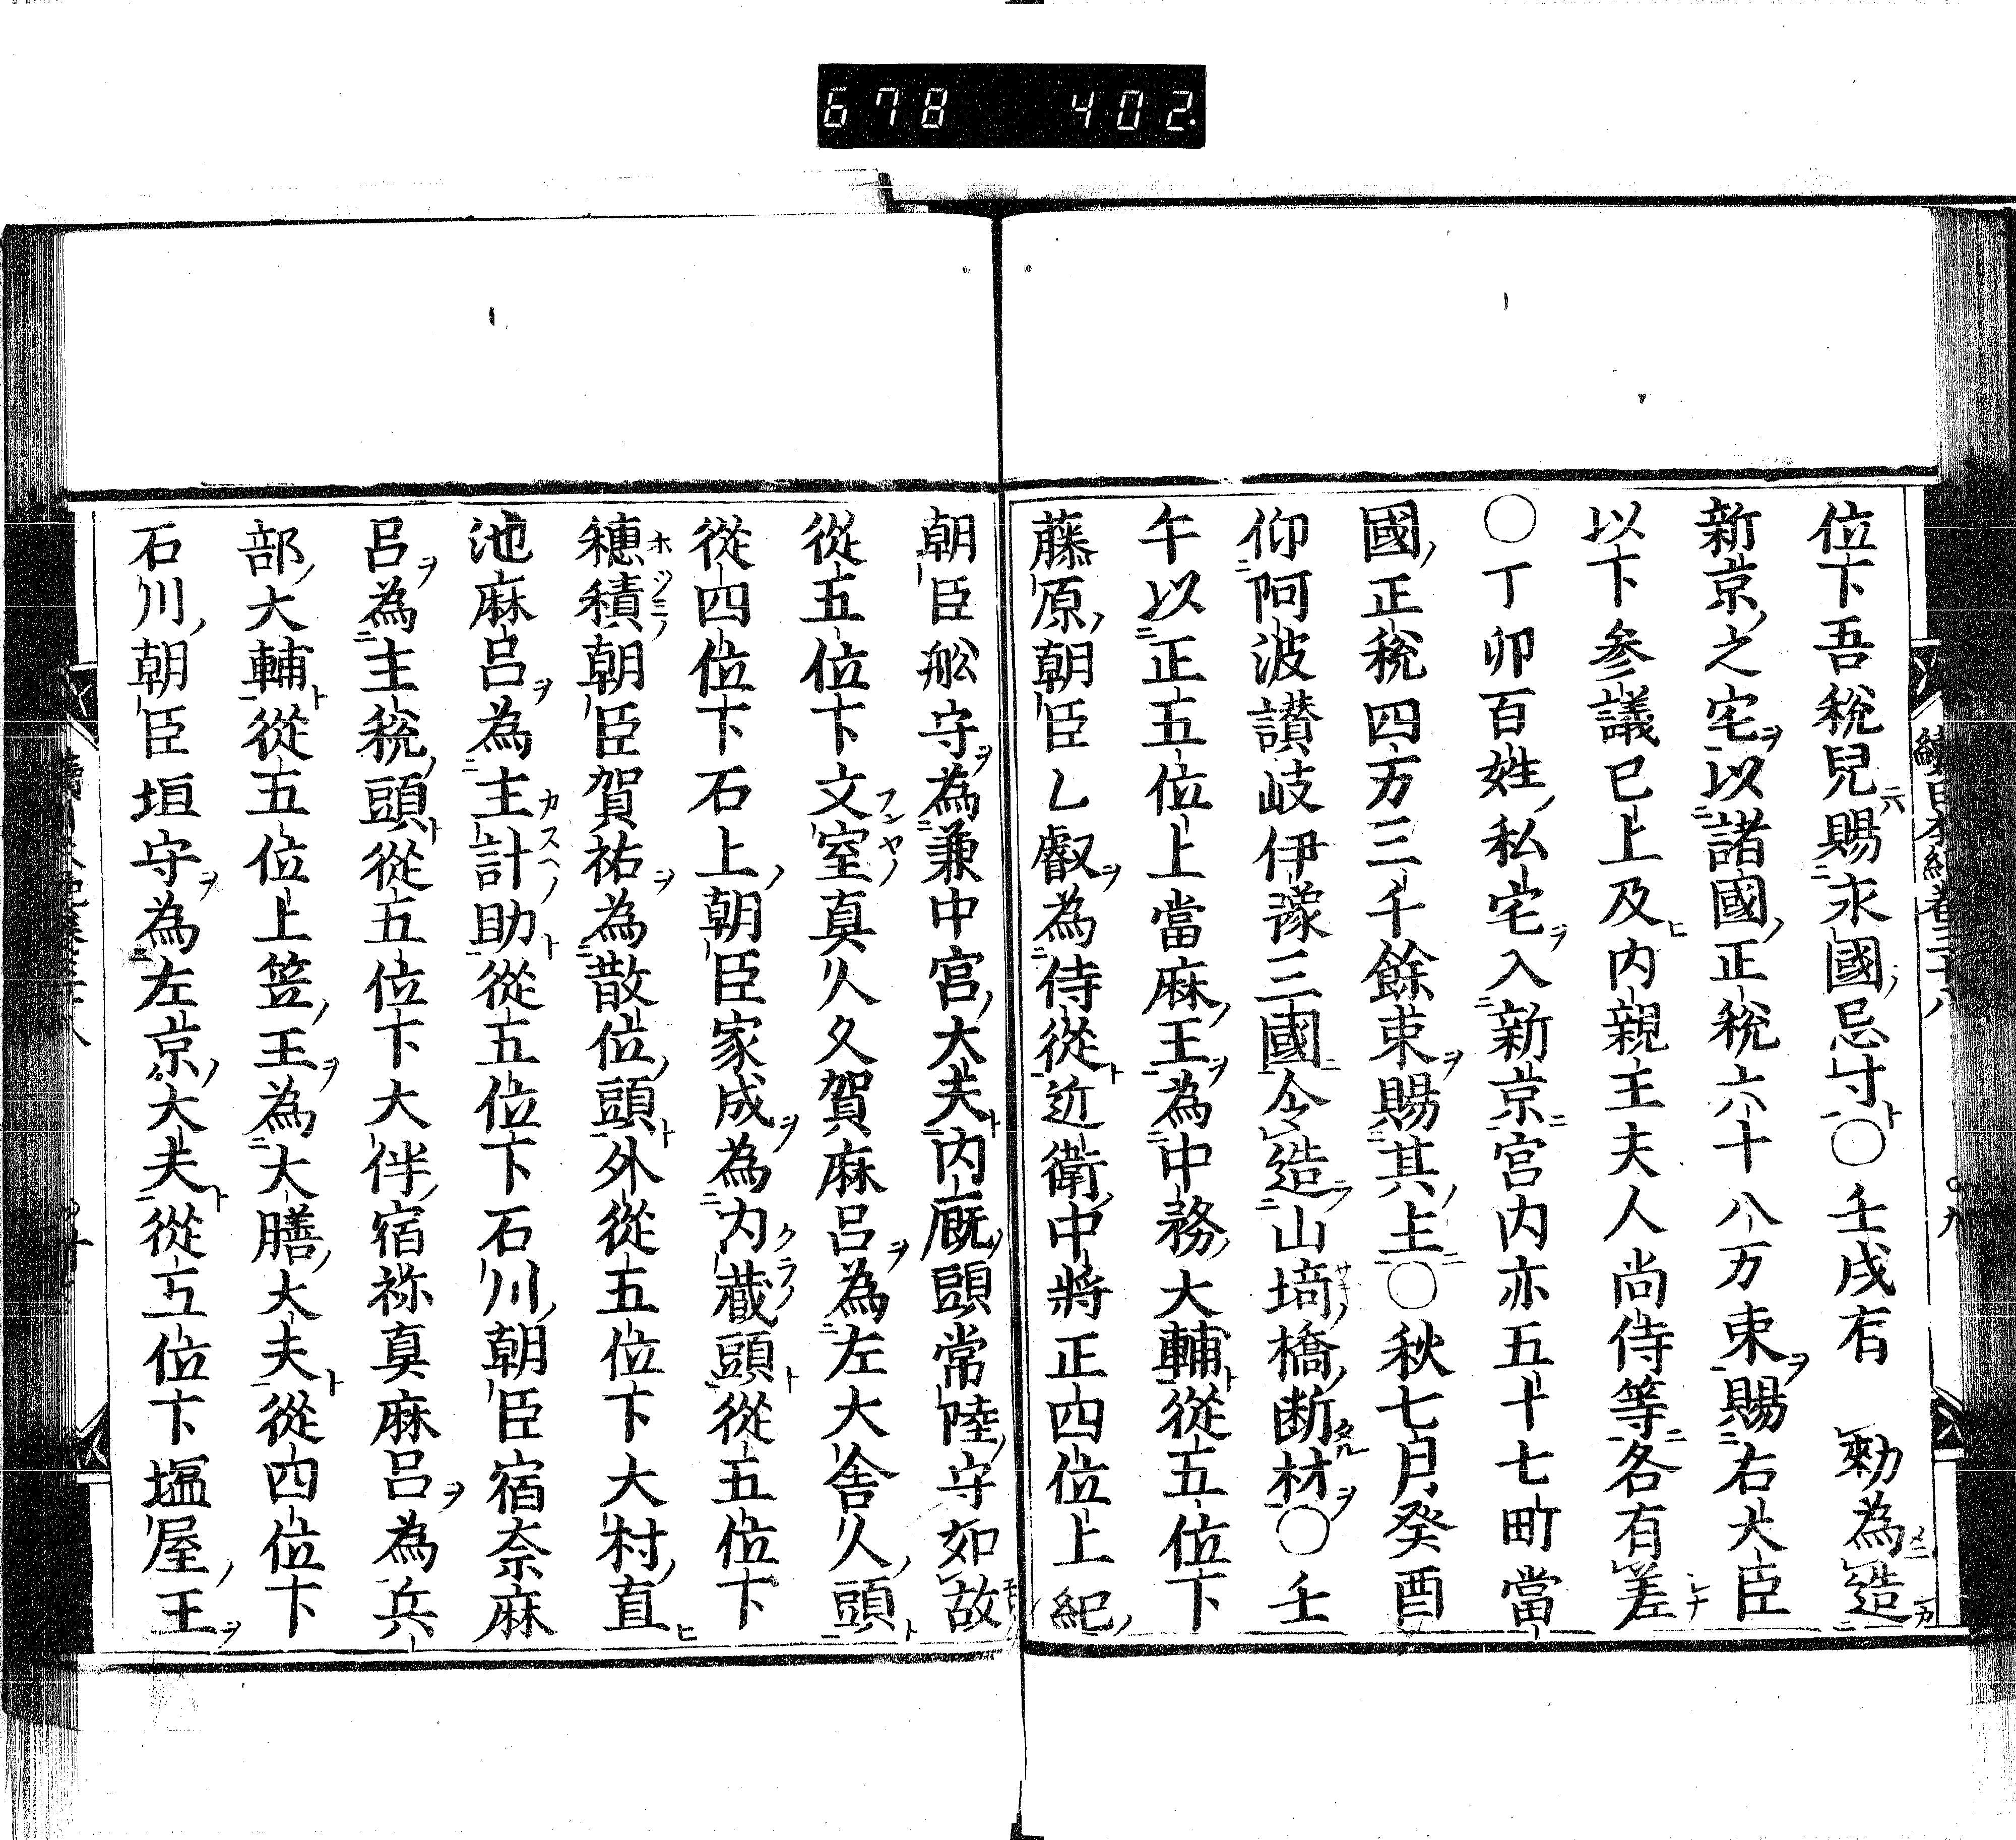 678 402.
位下吾税兒賜求國忌寸○壬戌有 勅為造
新京之宅以諸國正税六十八万束賜右大臣
以下参議已上及内親王夫人尚侍等各有差
○丁卯百姓私宅入新京宮内亦五十七町當
國正税四万三千餘束賜其主○秋七月癸酉
仰阿波讃岐伊豫三國令造山埼橋断材○壬
午以正五位上當麻王為中務大輔從五位下
藤原朝臣乙叡為侍從近衛中將正四位上紀
朝臣舩守為兼中宮大夫内厩頭常陸守如故
從五位下文室真人久賀麻呂為左大舎人頭
從四位下石上朝臣家成為内蔵頭從五位下
穗積朝臣賀祐為散位頭外從五位下大村直
池麻呂為主計助從五位下石川朝臣宿奈麻
呂為主税頭從五位下大伴宿祢真麻呂為兵
部大輔從五位上笠王為大膳大夫從四位下
石川朝臣垣守為左京大夫從五位下塩屋王